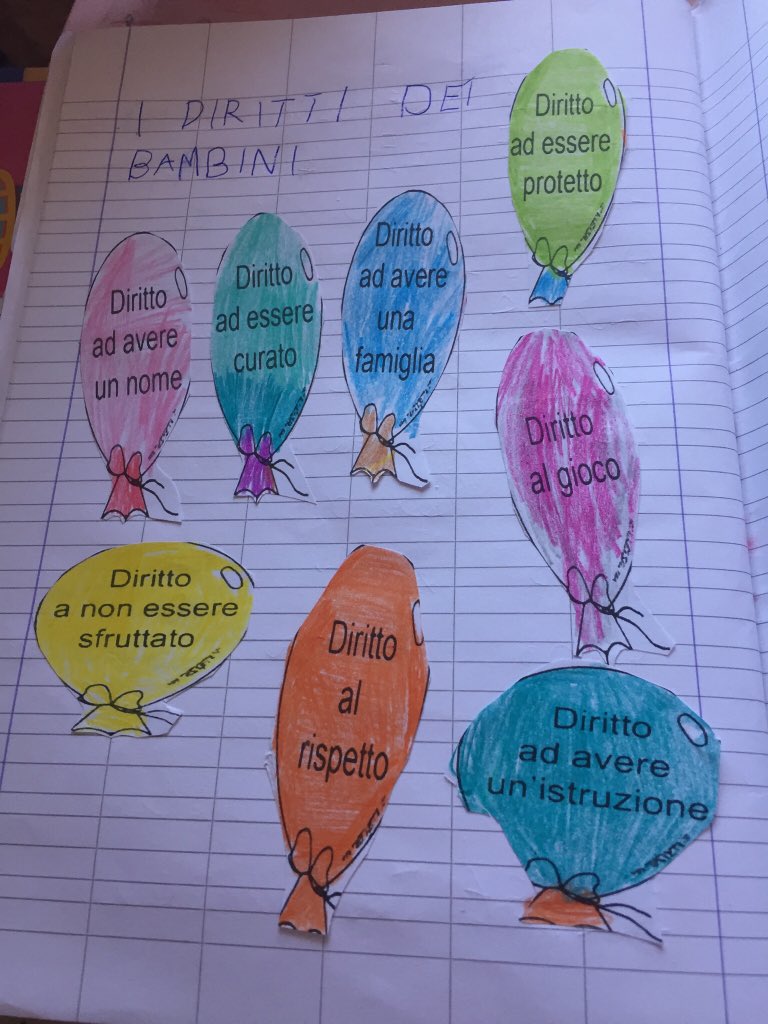 I DIRITTI DEI
BAMBINI
Diritto
ad essere
protetto
Diritto
ad avere
un nome
Diritto
ad essere
curato
Diritto
ad avere
una
famiglia
Diritto
al gioco
Diritto
a non essere
sfruttato
Diritto
al
rispetto
Diritto
ad avere
un'istruzione